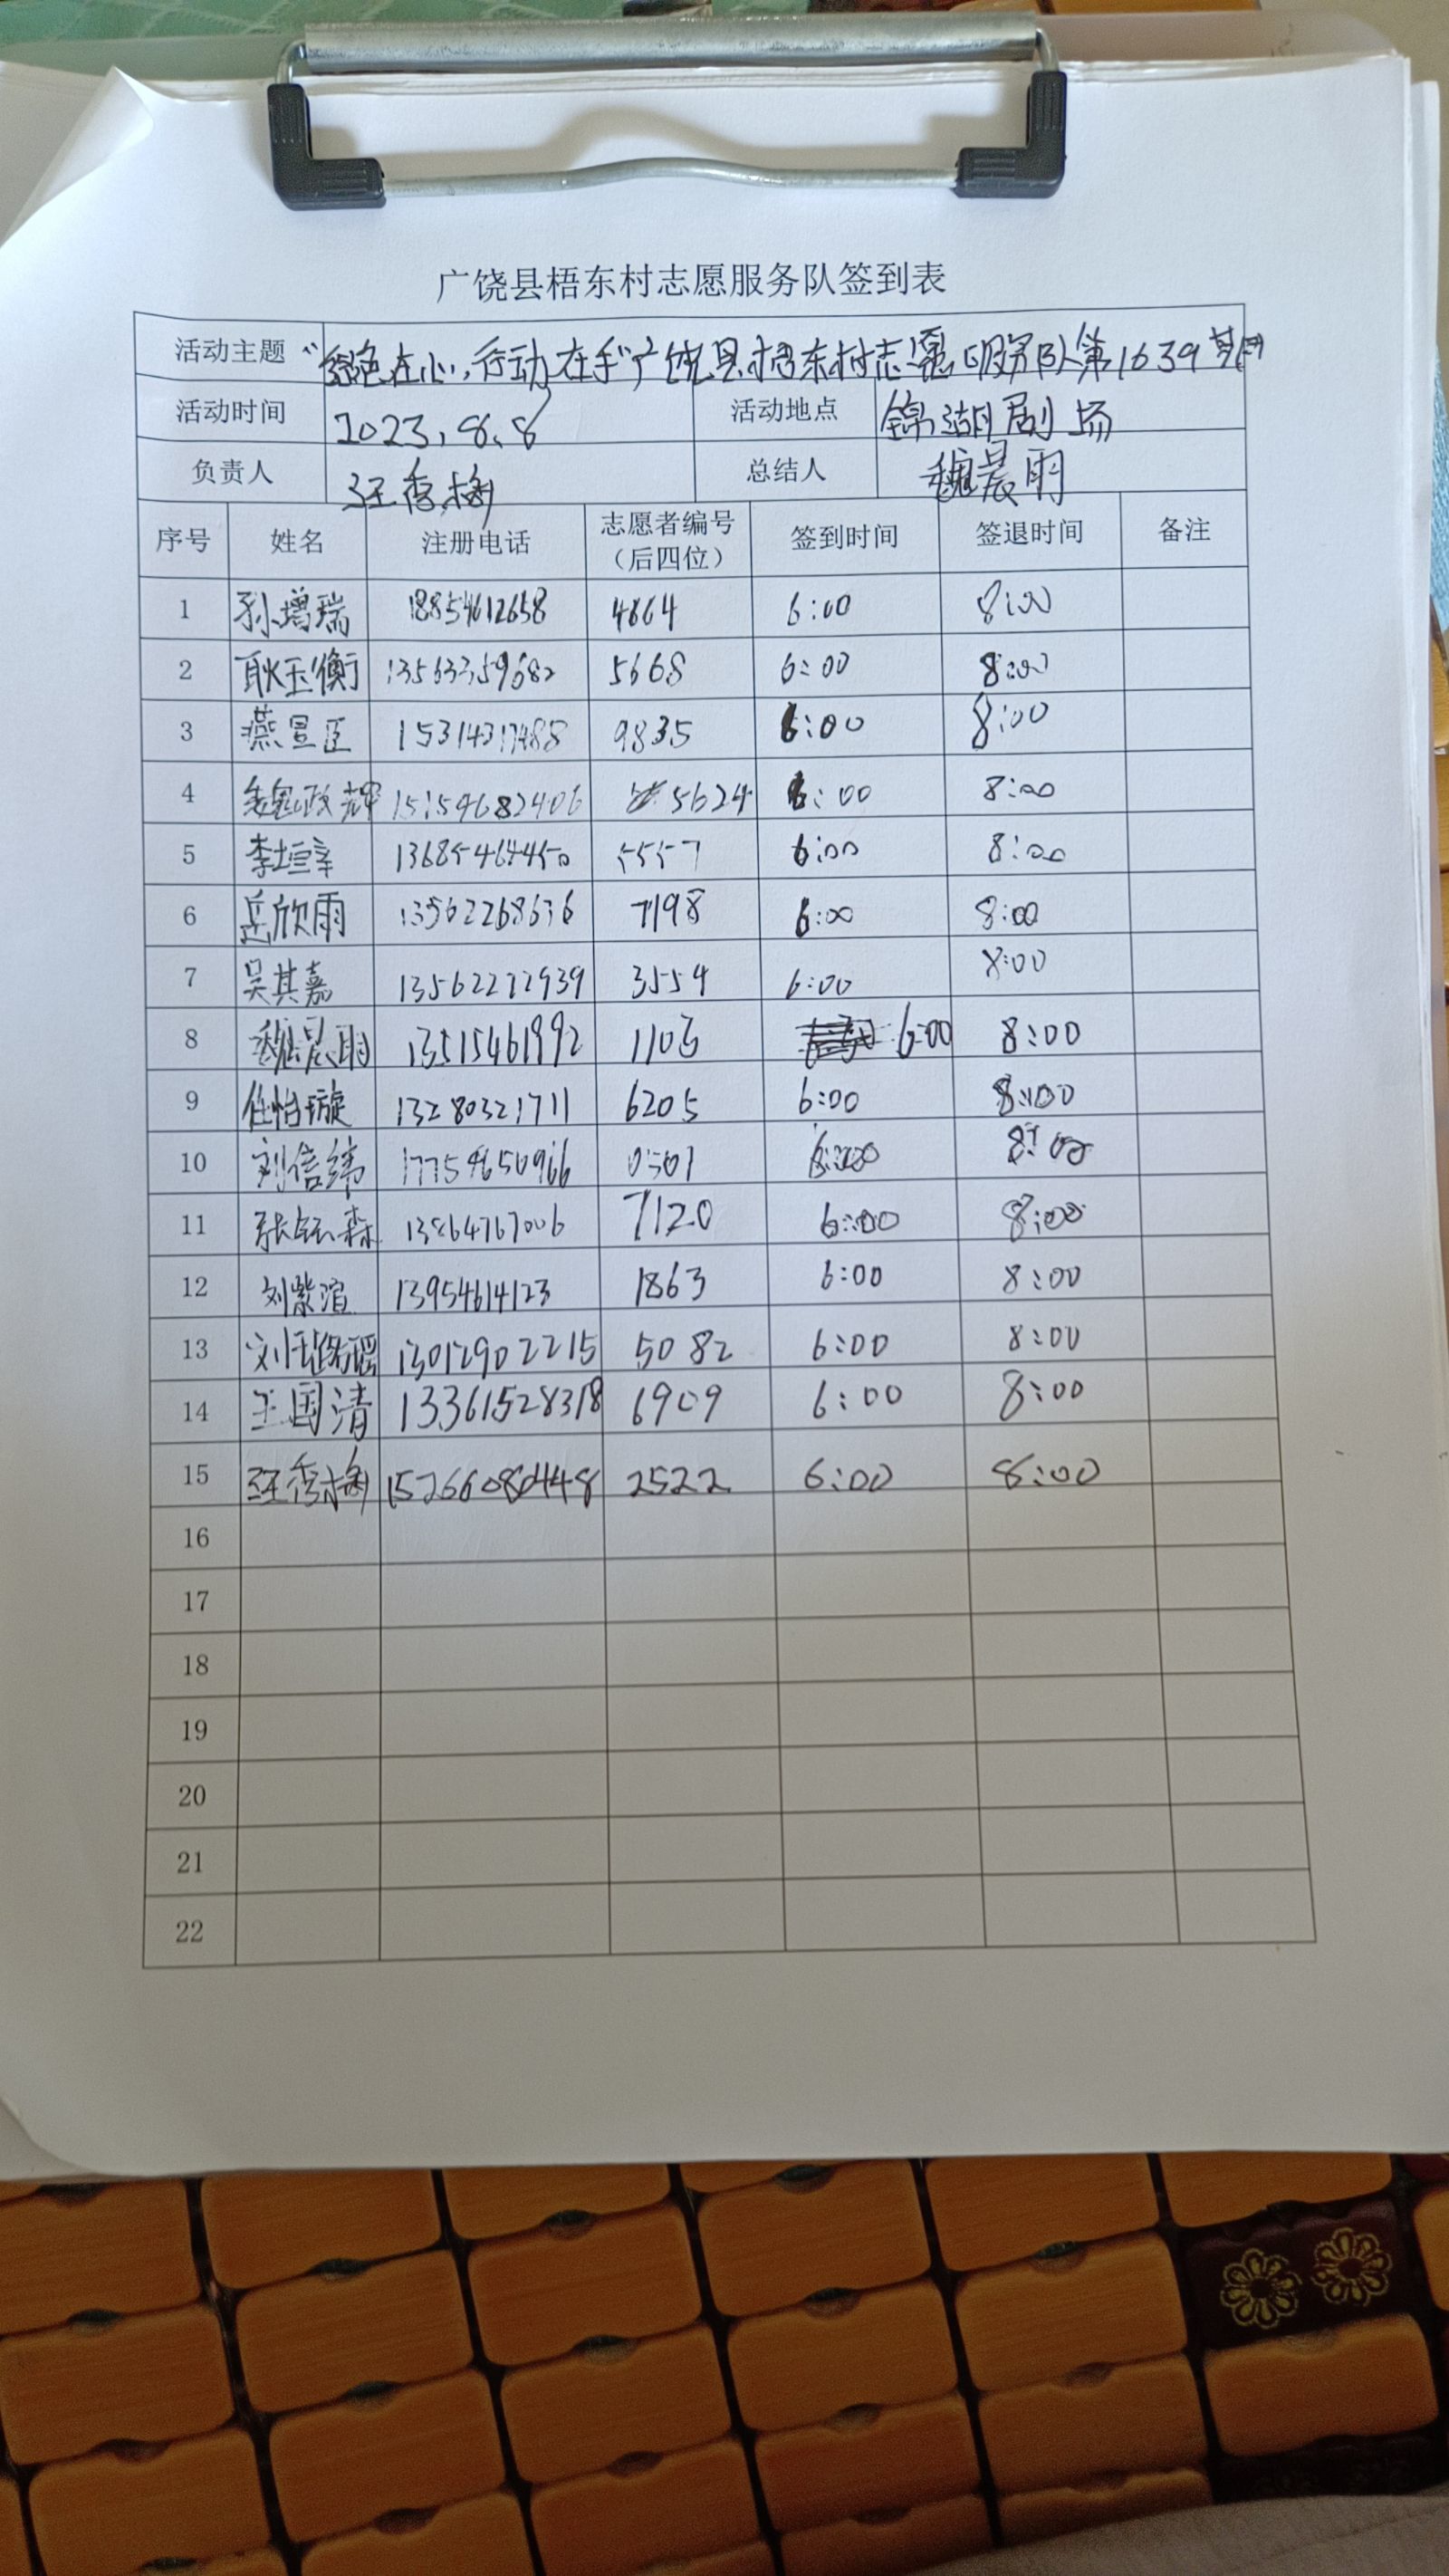 广饶县梧东村志愿服务队签到表
活动主题 “绿色在心,行动在手”广饶县梧东村志愿服务队第1639期
活动时间 2023.8.8 活动地点 锦湖剧场
负责人 汪秀梅 总结人 魏晨雨
序号 姓名 注册电话 志愿者编号(后四位) 签到时间 签退时间 备注
1 孙增瑞 18854612658 4864 6:00 8:00
2 耿玉衡 13563359682 5668 6:00 8:00
3 燕昱臣 15314317488 9835 6:00 8:00
4 魏政辉 15154682406 5624 6:00 8:00
5 李垣宰 13685464450 5557 6:00 8:00
6 岳欣雨 13562268636 7198 6:00 8:00
7 吴其嘉 13562272939 3554 6:00 8:00
8 魏晨雨 13515461992 1103 6:00 8:00
9 任怡璇 13280321711 6205 6:00 8:00
10 刘信纬 17754650966 0501 6:00 8:00
11 森 13864767006 7120 6:00 8:00
12 刘紫渲 13954614123 1863 6:00 8:00
13 刘 13012902215 5082 6:00 8:00
14 王国清 13361528318 6909 6:00 8:00
15 汪秀梅 15266080448 2522 6:00 8:00
16
17
18
19
20
21
22